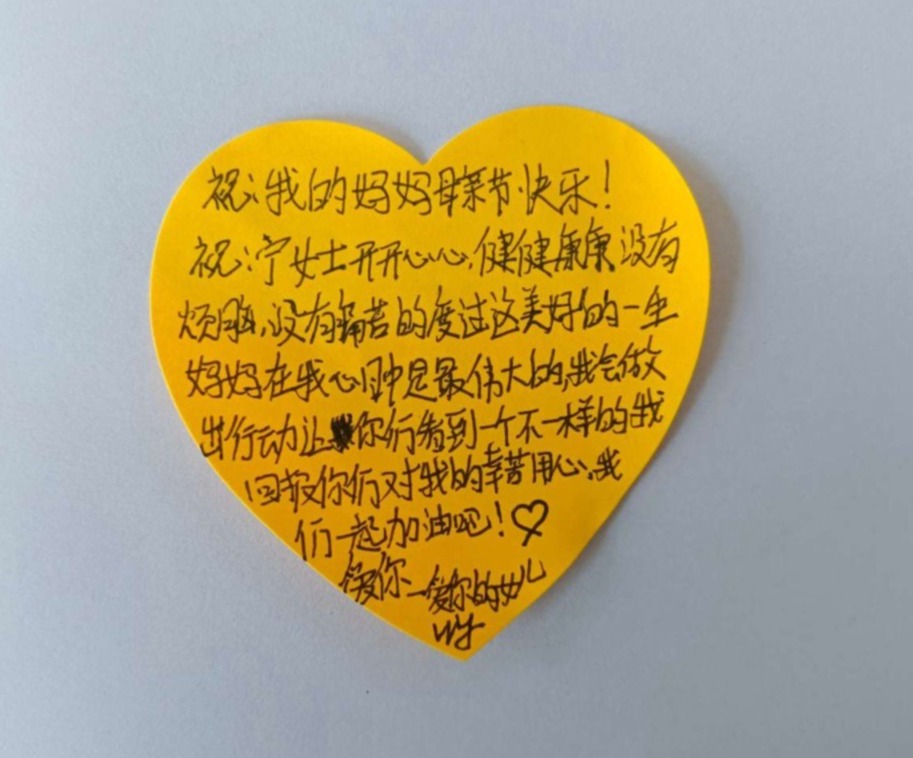 祝:我的妈妈母亲节快乐!
祝:宁女士开开心心,健健康康没有
烦恼,没有痛苦的度过这美好的一生
妈妈在我心目中是最伟大的,我会做
出行动让你们看到一个不一样的我
回报你们对我的辛苦用心,我
们一起加油吧!♡
爱你—爱你的女儿